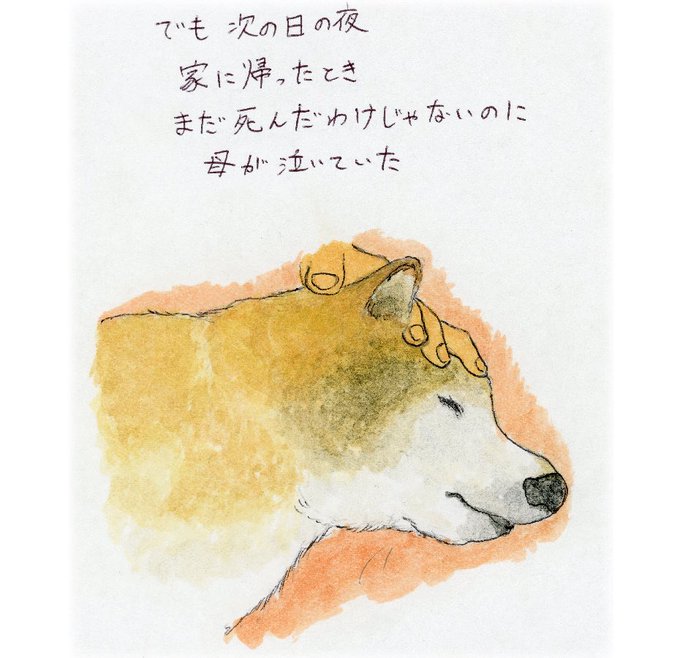 でも 次の日の夜
家に帰ったとき
まだ死んだわけじゃないのに
母が泣いていた